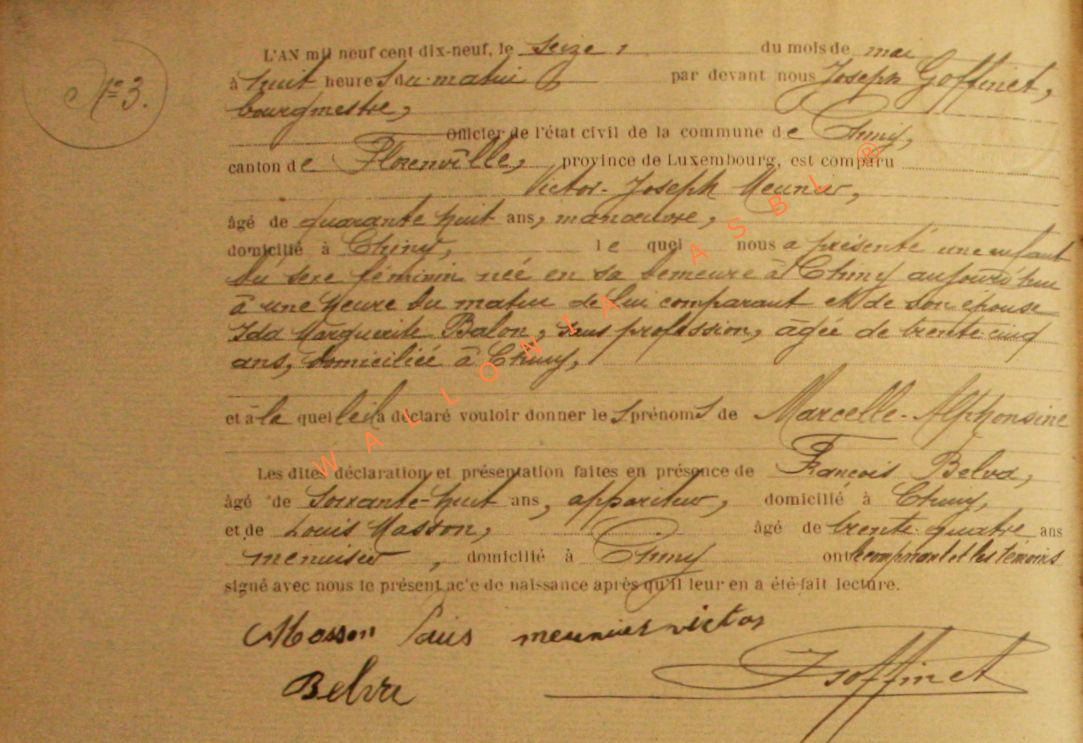 N° 3.
L'AN mil neuf cent dix-neuf, le seize du mois de mai
à huit heures du matin par devant nous Joseph Goffinet,
bourgmestre,
Officier de l'état civil de la commune de Chiny,
canton de Florenville, province de Luxembourg, est comparu
Victor-Joseph Meunier,
âgé de quarante huit ans, manœuvre,
domicilié à Chiny, le quel nous a présenté une enfant
du sexe féminin née en sa demeure à Chiny aujourd'hui
à une heure du matin de lui comparant et de son épouse
Ida Marguerite Balon, sans profession, âgée de trente-cinq
ans, domiciliée à Chiny,
et à la quelle il a déclaré vouloir donner les prénoms de Marcelle-Alphonsine
Les dites déclaration et présentation faites en présence de François Belva,
âgé de soixante-huit ans, appariteur, domicilié à Chiny,
et de Louis Masson, âgé de trente-quatre ans
menuisier, domicilié à Chiny ont le comparant et les témoins
signé avec nous le présent acte de naissance après qu'il leur en a été fait lecture.
Masson Louis meunier victor
Belva JGoffinet
WALLONIA ASBL ®